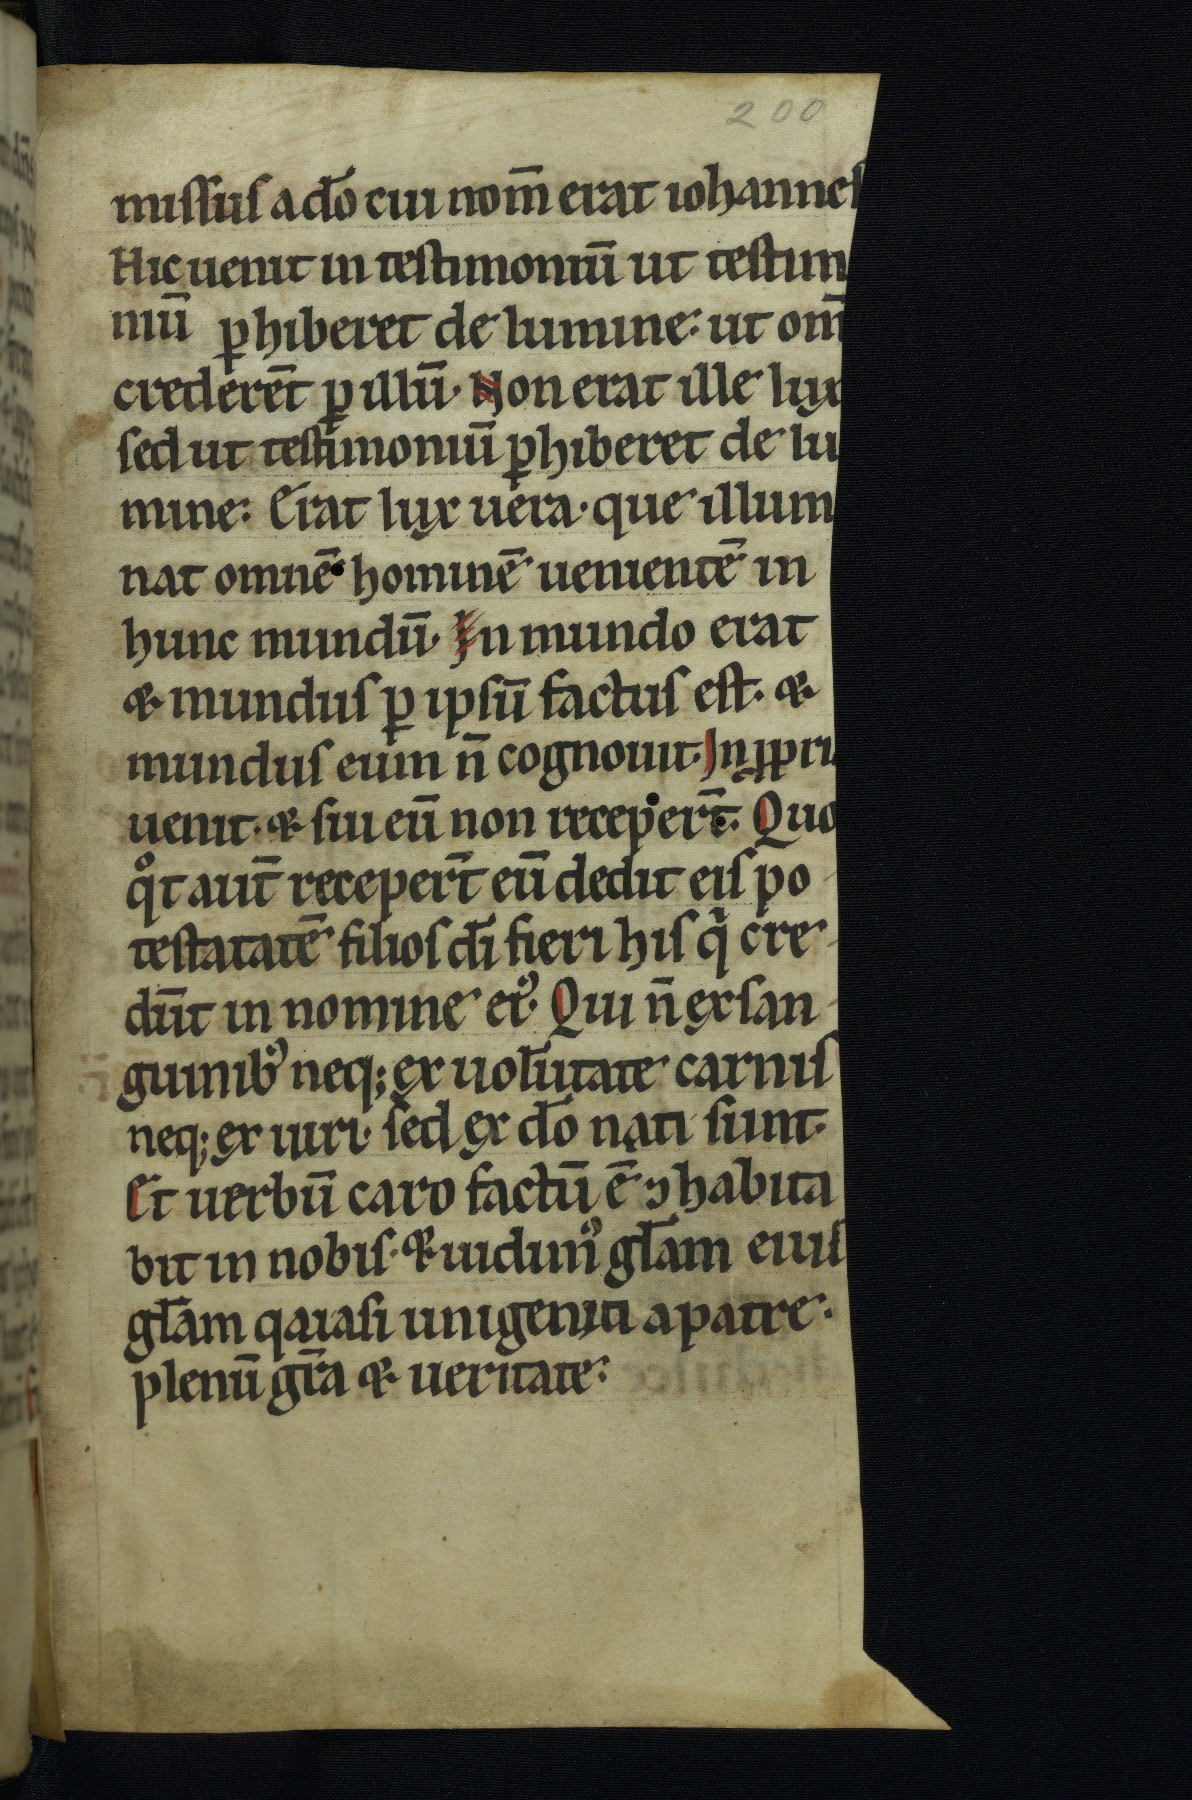 200
missus a dō cui nom̄ erat iohannes
Hic uenit in testimoniū ut testim
niū ꝑhiberet de lumine: ut om̄
crederēt ꝑ illū. Non erat ille lux
sed ut testimoniū ꝑhiberet de lu
mine: Erat lux uera. que illum
nat omnē hominē uenientē in
hunc mundū. In mundo erat
& mundus ꝑ ipsū factus est. &
mundus eum n̄ cognouit. In ꝓpri
uenit. & sui eū non receper̄t. Quo
qͦt aut̄ receper̄t eū dedit eis po
testatatē filios dī fieri his qͥ cre
dūt in nomine eiꝰ. Qui n̄ ex san
guinibꝰ neq; ex uolūtate carnis
neq; ex uiri. sed ex dō nati sunt.
Et uerbū caro factū ē ⁊ habita
bit in nobis. & uidimꝰ gl̄am eius
gl̄am qaiasi unigeniti a patre.
plenū gr̄a & ueritate: